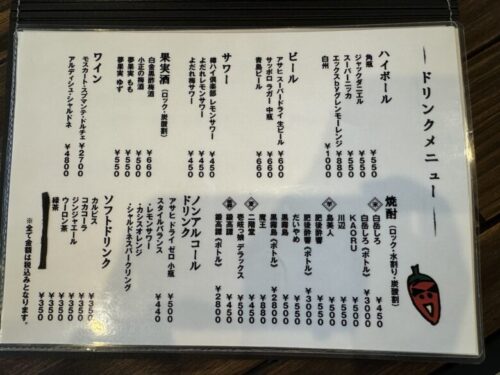 ドリンクメニュー
ハイボール
角瓶 ¥550
ジャックダニエル ¥550
スーパーニッカ ¥550
エックスbyグレンモーレンジ ¥880
白州 ¥1000
ビール
アサヒ スーパードライ 生ビール ¥600
サッポロ ラガー 中瓶 ¥660
青島ビール ¥660
サワー
樽ハイ倶楽部 レモンサワー ¥450
よだれレモンサワー ¥450
よだれ梅サワー ¥450
果実酒（ロック・炭酸割）
白金黒酢梅酒 ¥660
小正の梅酒 ¥550
夢果実 もも ¥550
夢果実 ゆず ¥550
ワイン
モスカート・スプマンテ・ドルチェ ¥2700
アルディッシュ・シャルドネ ¥4800
焼酎（ロック・水割り・炭酸割）
白岳しろ ¥450
白岳しろ（ボトル） ¥3000
KAORU ¥500
川辺 ¥550
島美人
（ボトル） ¥3000
だいやめ
黒霧島
黒霧島（ボトル） ¥2800
魔王
二階堂 ¥450
壱岐っ娘 デラックス ¥500
（ボトル） ¥2800
ノンアルコールドリンク
アサヒ ドライ ゼロ 小瓶 ¥500
スタイルバランス ¥440
・レモンサワー
・カシスオレンジ
・シャルドネスパークリング
ソフトドリンク
カルピス ¥350
コカコーラ ¥350
ジンジャエール ¥350
ウーロン茶 ¥350
緑茶 ¥350
※全て金額は税込みとなります。